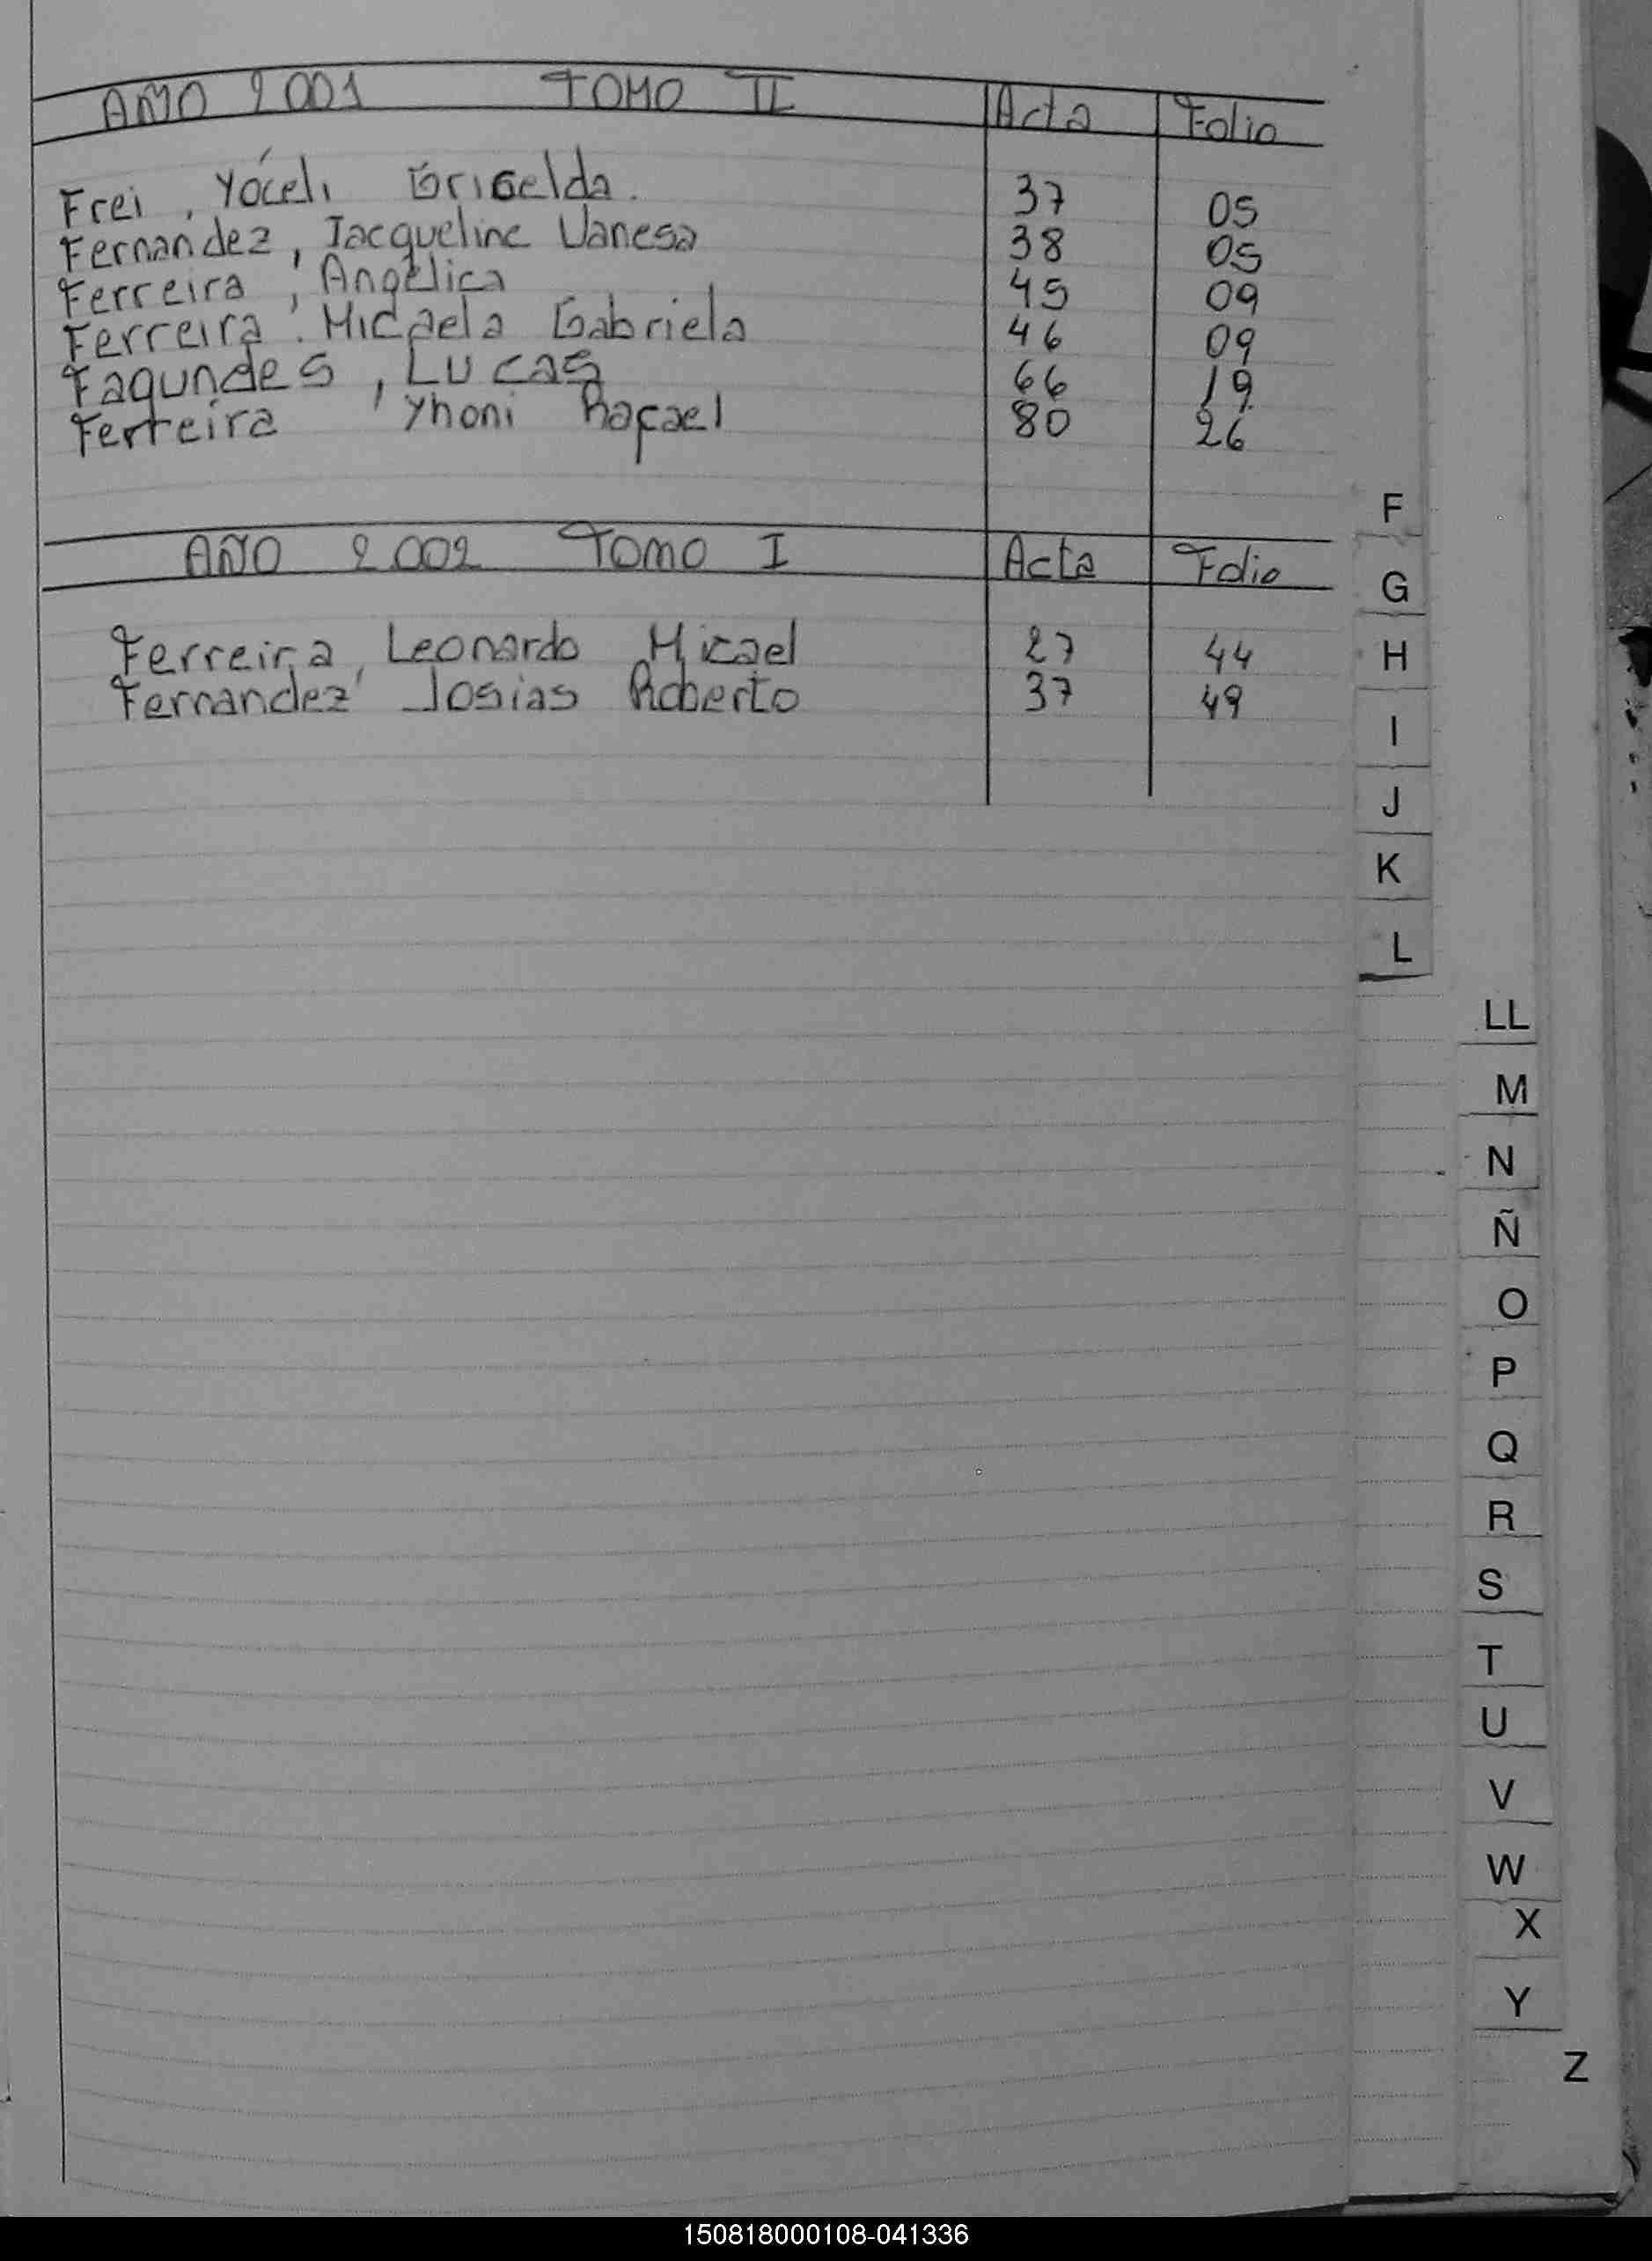 AÑO 2001 TOMO II Acta Folio
Frei, Yóceli Griselda. 37 05
Fernandez, Jacqueline Vanesa 38 05
Ferreira, Angélica 45 09
Ferreira, Micaela Gabriela 46 09
Fagundes, Lucas 66 19
Ferreira, Yhoni Rafael 80 26
AÑO 2002 Tomo I Acta Folio
Ferreira, Leonardo Micael 27 44
Fernandez, Josias Roberto 37 49
F
G
H
I
J
K
L
LL
M
N
Ñ
O
P
Q
R
S
T
U
V
W
X
Y
Z
150818000108-041336